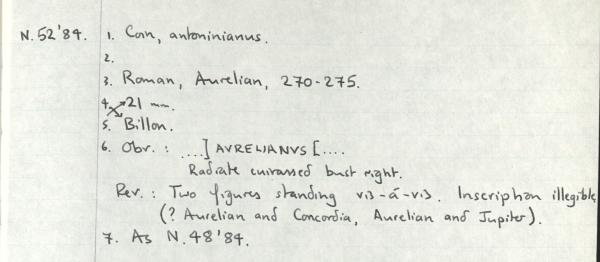 N.52'84. 1. Coin, antoninianus.
2.
3. Roman, Aurelian, 270-275.
4. 21 mm.
5. Billon.
6. Obv.: ...] AVRELIANVS [....
Radiate cuirassed bust right.
Rev.: Two figures standing vis-à-vis. Inscription illegible
(? Aurelian and Concordia, Aurelian and Jupiter).
7. As N.48'84.